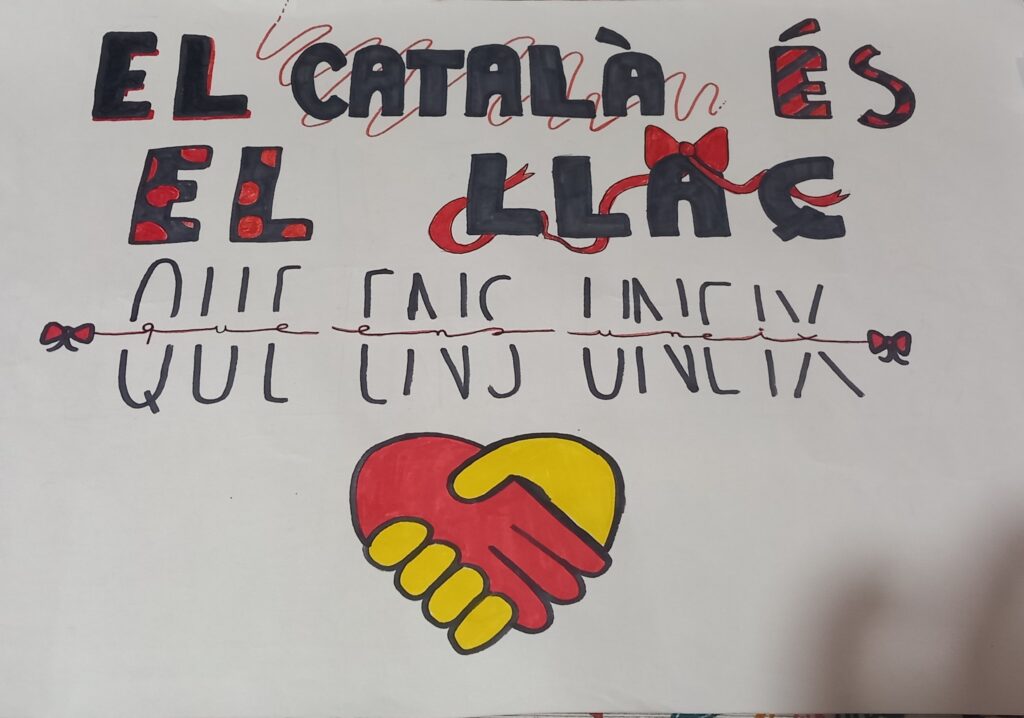 EL CATALÀ ÉS
EL LLAÇ
QUE ENS UNEIX
que ens uneix